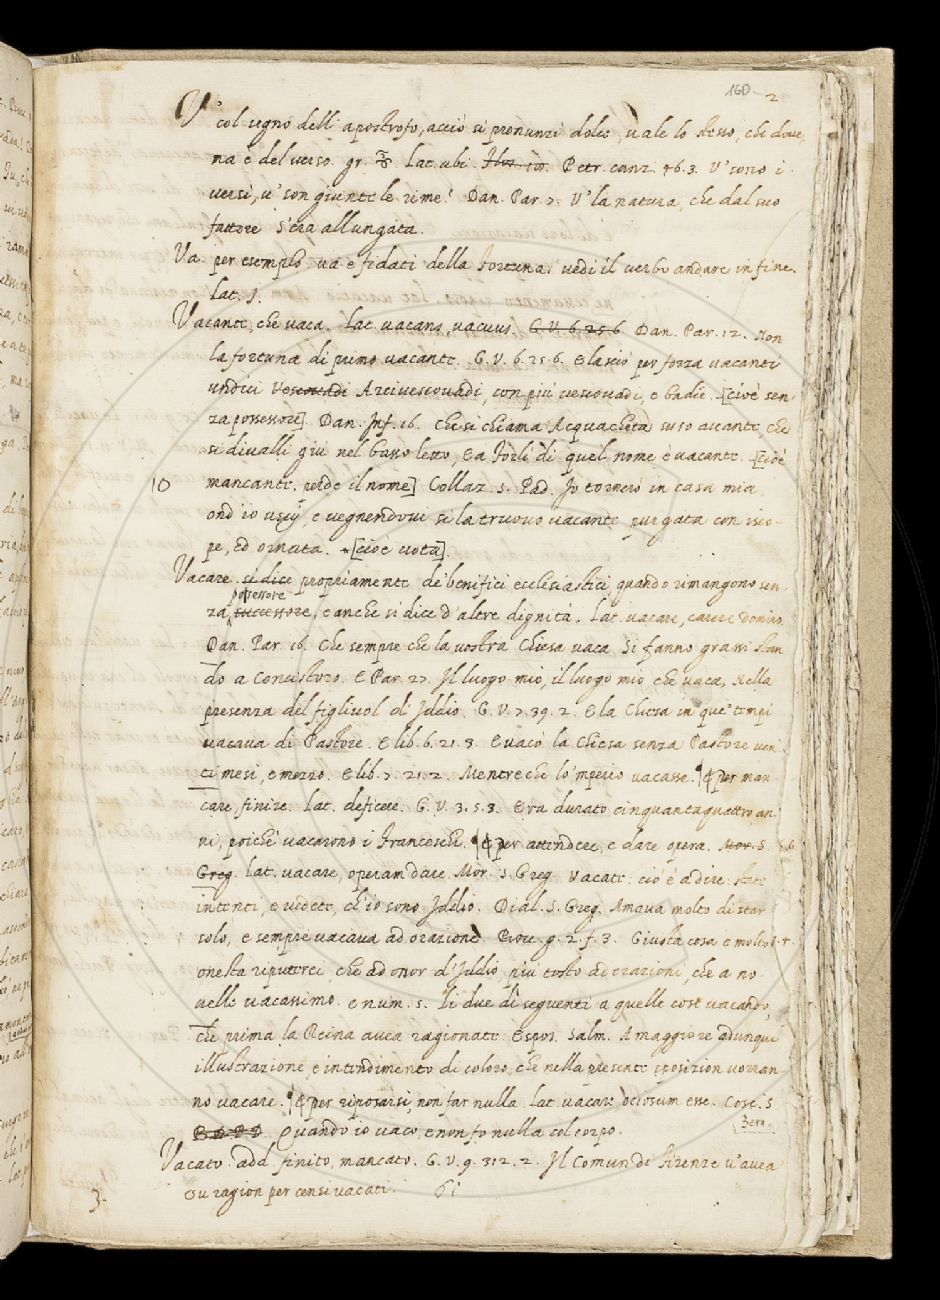 160 2
V' col segno dell' apostrofo, acciò si pronunzi dolce, vale lo stesso, che dove,
na è del verso. gr. Lat. ubi. Petr. canz. 46. 3. V' sono i
versi, u' son giunte le rime? Dan. Par. 7. V' la natura, che dal suo
fattore s'era allungata.
Va. per esemplo. va e fidati della fortuna. vedi il verbo andare in fine.
Lat. I.
Vacante, che vaca. Lat. vacans, vacuus. G. V. 6. 25. 6 Dan. Par. 12. Non
la fortuna di primo vacante. G. V. 6. 25. 6. E lasciò per forza vacanti
undici Vescovadi Arcivescovadi, con più vescovadi, e badie. [cioè sen,
za possessore]. Dan. Inf. 16. Che si chiama Acquacheta suso avante, che
si divalli giù nel basso letto, E a Forlì di quel nome è vacante. [cioè
10 mancante. perde il nome] Collaz. S. Pad. Io tornerò in casa mia
ond'io uscij, e vegnendovi si la truovo vacante, purgata con isco-
pe, ed ornata. [cioè vota].
Vacare. si dice propriamente de' benifici ecclesiastici, quando rimangono sen-
possessore
za successore, e anche si dice d'altre dignità. Lat. vacare, carere domino.
Dan. Par. 16. Che sempre che la vostra Chiesa vaca Si fanno grassi stan
do a Concistoro. E Par. 27. Il luogo mio, il luogo mio che vaca, Nella
presenza del figliuol di Iddio. G. V. 7. 39. 2. E la Chiesa in que' tempi
vacava di Pastore. E lib. 6. 21. 3. E vacò la Chiesa senza Pastore ven
ti mesi, e mezzo. E lib. 7. 21. 2. Mentre che lo 'mperio vacasse. ¶ per man
care, finire. Lat. deficere. G. V. 3. 5. 3. Era durato cinquantaquattro an
ni, poichè vacarono i Franceschi. ¶ per attendere, e dare opera. Mor. S.
Greg. Lat. vacare, operam dare. Mor. S. Greg. Vacate: ciò è a dire: state
intenti, e vedete, ch'io sono Iddio. Dial. S. Greg. Amava molto di star
solo, e sempre vacava ad orazione. Bocc. g. 2. f. 3. Giusta cosa e molto
onesta reputerei, che ad onor d'Iddio, più tosto ad orazioni, che a no-
velle vacassimo. e num. 5. li due dì seguenti a quelle cose vacando,
che prima la Reina avea ragionate. Espos. Salm. A maggiore adunque
illustrazione, e intendimento di coloro, che nella presente sposizion vorran-
no vacare. ¶ per riposarsi, non far nulla. Lat. vacare, ociosum esse. Cosc. S.
Bern.
Quando io vaco, e non fo nulla col corpo.
Vacato. add. finito, mancato. G. V. 9. 312. 2. Il Comun di Firenze v'avea
su ragion per censi vacati. 61
3.